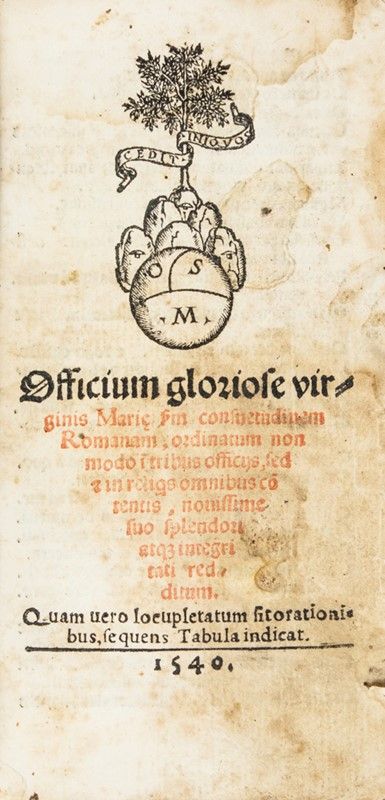 CEDIT INIQVOS
O S
M
Officium glorioſe vir⸗
ginis Marię ſm conſuetudinem
Romanam, ordinatum non
modo ĩ tribus officijs, ſed
⁊ in reliq̃s omnibus cõ
tentis, nouiſſime
ſuo ſplendori
atqꝫ integri
tati red⸗
ditum.
Quam uero locupletatum ſit orationi⸗
bus, ſequens Tabula indicat.
1540.